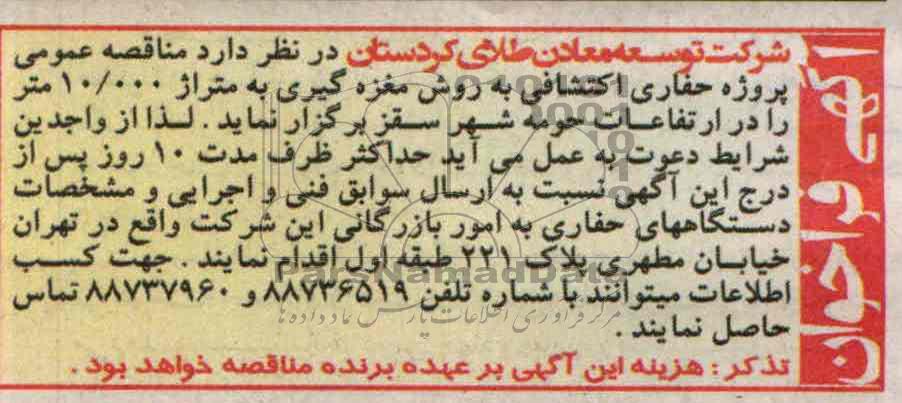 آگهی فراخوان
شرکت توسعه معادن طلای کردستان در نظر دارد مناقصه عمومی
پروژه حفاری اکتشافی به روش مغزه گیری به متراژ ۱۰/۰۰۰ متر
را در ارتفاعات حومه شهر سقز برگزار نماید . لذا از واجدین
شرایط دعوت به عمل می آید حداکثر ظرف مدت ۱۰ روز پس از
درج این آگهی نسبت به ارسال سوابق فنی و اجرایی و مشخصات
دستگاههای حفاری به امور بازرگانی این شرکت واقع در تهران
خیابان مطهری پلاک ۲۲۱ طبقه اول اقدام نمایند . جهت کسب
اطلاعات میتوانند با شماره تلفن ۸۸۷۳۶۵۱۹ و ۸۸۷۳۷۹۶۰ تماس
حاصل نمایند .
تذکر : هزینه این آگهی بر عهده برنده مناقصه خواهد بود .
ParsNamadData
مرکز فرآوری اطلاعات پارس نماد داده ها